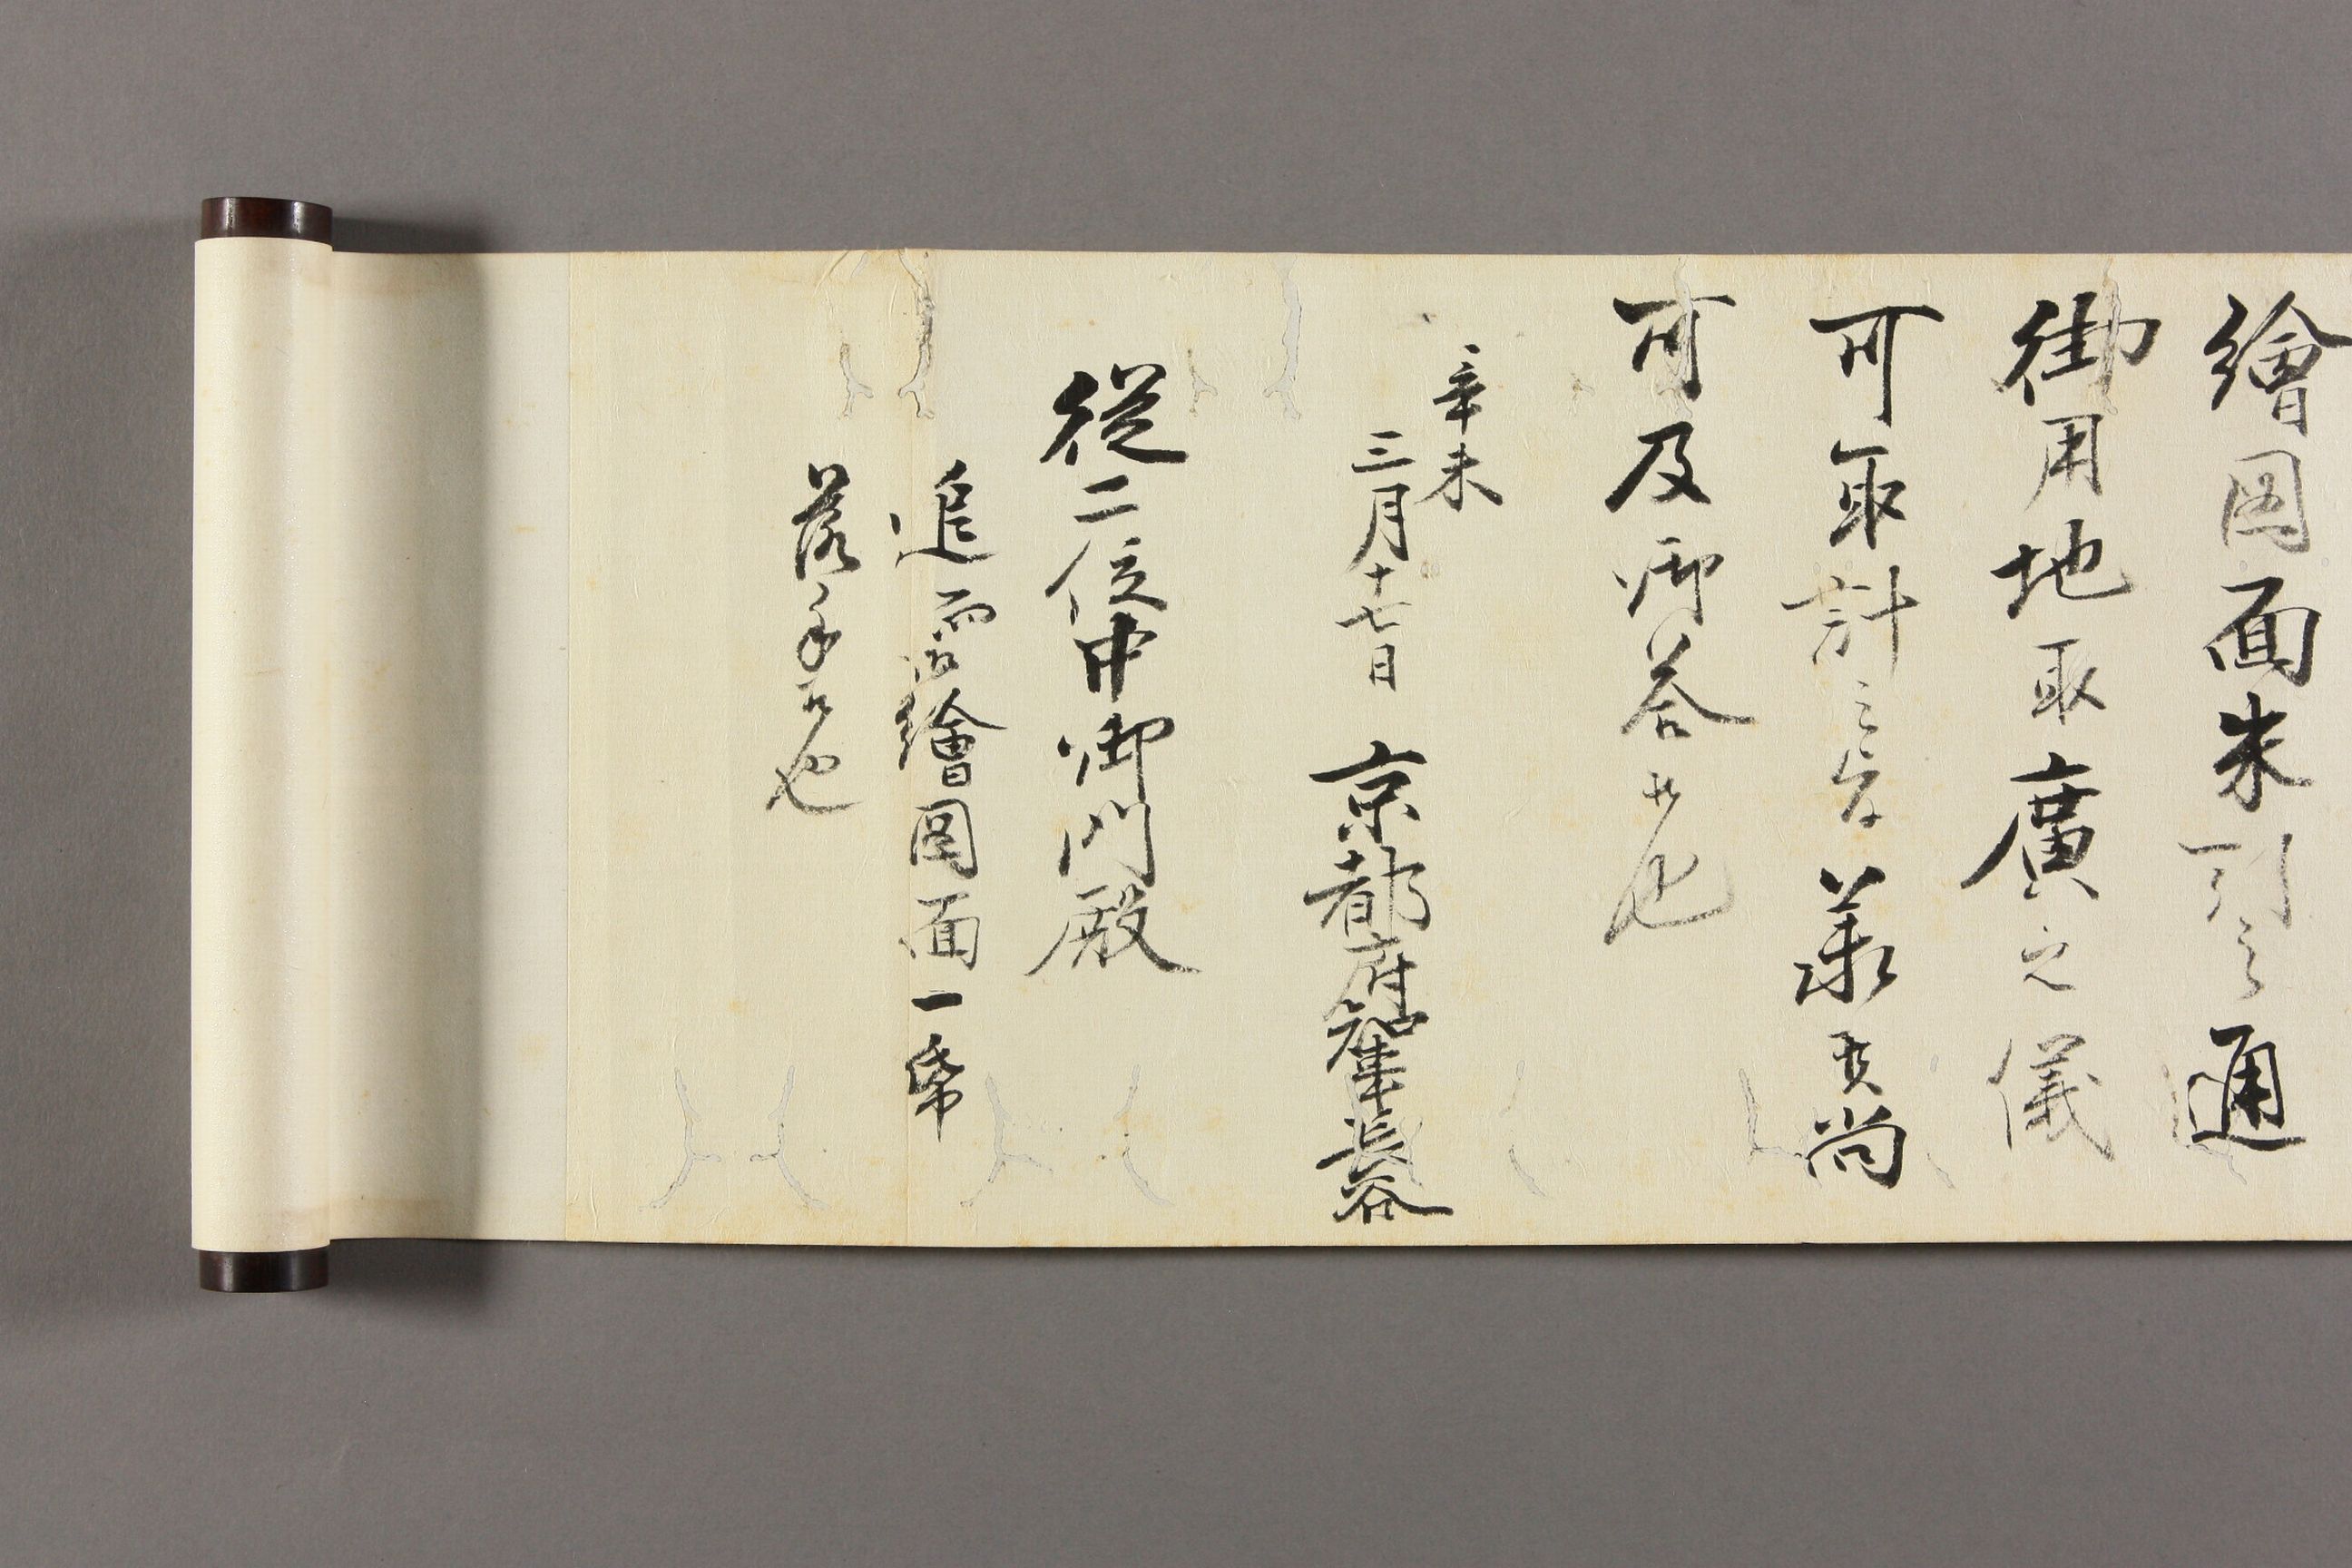 繪圖面朱引之通
御用地取廣之儀
可取計之旨 尚
可及御答候也
辛未
三月十七日 京都府知事長谷
従二位中御門殿
追而御繪圖面一帋
落手候也